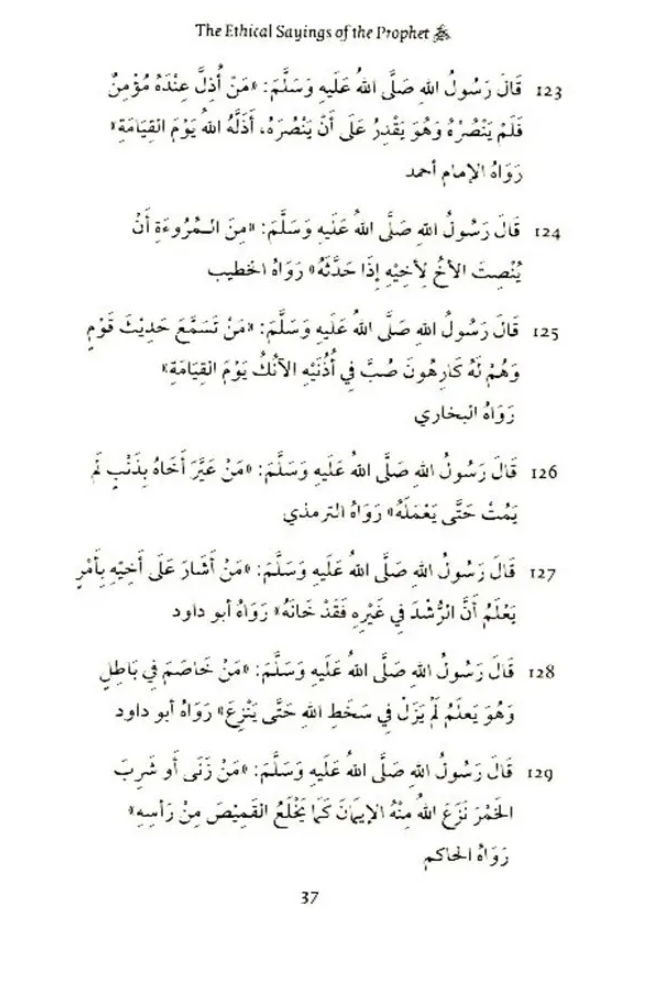 The Ethical Sayings of the Prophet ﷺ
123 قَالَ رَسُولُ اللهِ صَلَّى اللهُ عَلَيهِ وَسَلَّمَ: «مَنْ أُذِلَّ عِنْدَهُ مُؤْمِنٌ
فَلَمْ يَنْصُرْهُ وَهُوَ يَقْدِرُ عَلَى أَنْ يَنْصُرَهُ، أَذَلَّهُ اللهُ يَوْمَ القِيَامَةِ»
رَوَاهُ الإمام أحمد
124 قَالَ رَسُولُ اللهِ صَلَّى اللهُ عَلَيهِ وَسَلَّمَ: «مِنَ الـمُرُوءَةِ أَنْ
يُنْصِتَ الأَخُ لِأَخِيْهِ إِذَا حَدَّثَهُ» رَوَاهُ الخطيب
125 قَالَ رَسُولُ اللهِ صَلَّى اللهُ عَلَيهِ وَسَلَّمَ: «مَنْ تَسَمَّعَ حَدِيْثَ قَوْمٍ
وَهُمْ لَهُ كَارِهُونَ صُبَّ فِي أُذُنَيْهِ الآنُكُ يَوْمَ القِيَامَةِ»
رَوَاهُ البخاري
126 قَالَ رَسُولُ اللهِ صَلَّى اللهُ عَلَيهِ وَسَلَّمَ: «مَنْ عَيَّرَ أَخَاهُ بِذَنْبٍ لَمْ
يَمُتْ حَتَّى يَعْمَلَهُ» رَوَاهُ الترمذي
127 قَالَ رَسُولُ اللهِ صَلَّى اللهُ عَلَيهِ وَسَلَّمَ: «مَنْ أَشَارَ عَلَى أَخِيْهِ بِأَمْرٍ
يَعْلَمُ أَنَّ الرُّشْدَ فِي غَيْرِهِ فَقَدْ خَانَهُ» رَوَاهُ أبو داود
128 قَالَ رَسُولُ اللهِ صَلَّى اللهُ عَلَيهِ وَسَلَّمَ: «مَنْ خَاصَمَ فِي بَاطِلٍ
وَهُوَ يَعلَمُ لَمْ يَزَلْ فِي سَخَطِ اللهِ حَتَّى يَنْزِعَ» رَوَاهُ أبو داود
129 قَالَ رَسُولُ اللهِ صَلَّى اللهُ عَلَيهِ وَسَلَّمَ: «مَنْ زَنَى أَو شَرِبَ
الخَمْرَ نَزَعَ اللهُ مِنْهُ الإِيمَانَ كَمَا يَخْلَعُ القَمِيْصَ مِنْ رَأسِهِ»
رَوَاهُ الحاكم
37